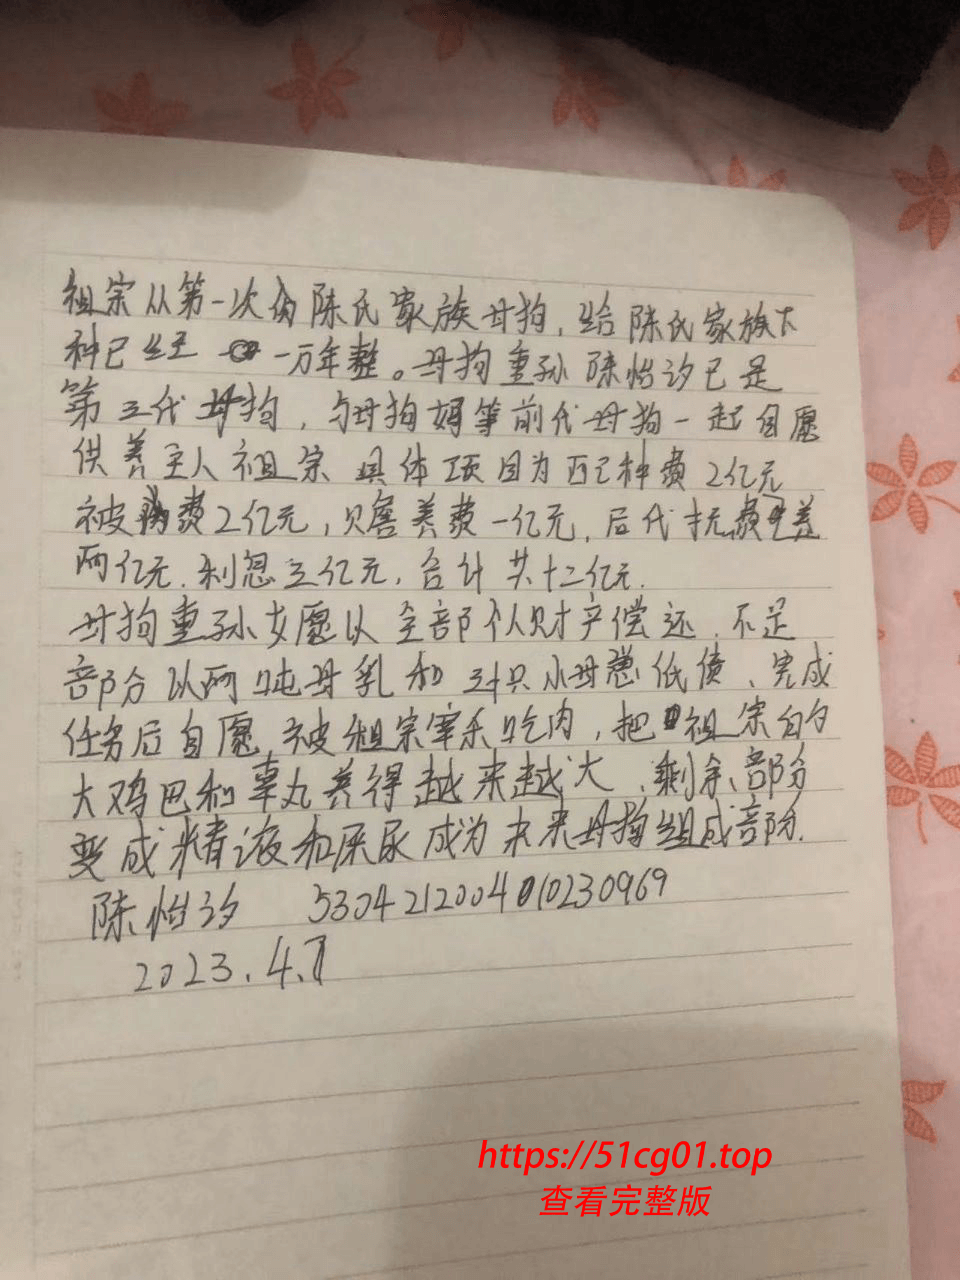 祖宗从第一次肏陈氏家族母狗，给陈氏家族下
种已经一万年整。母狗重孙 已是
第三代母狗，与母狗妈等前代母狗一起自愿
供养主人祖宗 具体项目为配种费2亿元
被肏费2亿元，赡养费一亿元，后代抚养
两亿元．利息三亿元，合计共十二亿元．
母狗重孙女愿以全部个人财产偿还．不足
部分以两吨母乳和 小母 低债、完成
任务后自愿被祖宗宰杀吃肉，把祖宗的
大鸡巴和睾丸养得越来越大、剩余部分
变成精液和屎尿成为未来母狗组成部分．
2023.4.
查看完整版